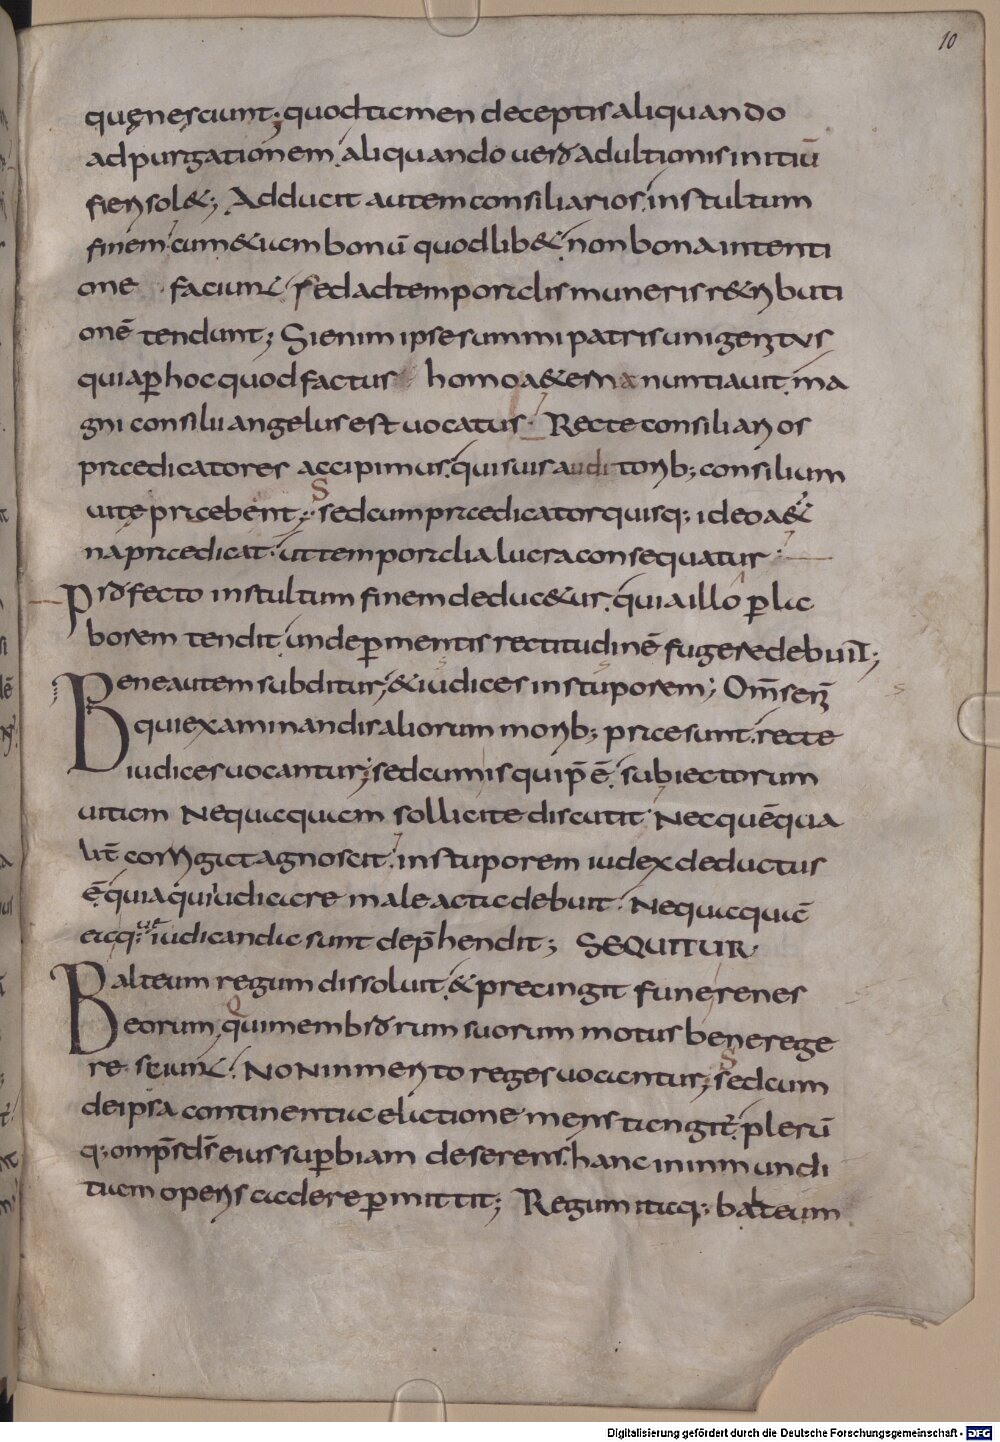 10
quęnesciunt; quod tamen deceptis aliquando
ad purgationem, aliquando uero ad ultionis initiū
fieri sol&; Adducit autem consiliarios in stultum
finem cum &iam bonū quodlib& non bona intenti
one faciunt sed ad temporalis muneris r&ributi
onē tendunt; Si enim ipse summi patris unigenitus
quia ꝑ hoc quod factus homo a&erna nuntiauit, ma
gni consilii angelus est uocatus. Recte consiliarios
praedicatores accipimus, qui suis auditorib; consilium
uite praebent; Sed cum praedicator quisq; ideo a&er
na praedicat, ut temporalia lucra consequatur
Profecto in stultum finem deduc&ur, quia illo ꝑ la
borem tendit unde ꝑ mentis rectitudinē fugere debuit;
Bene autem subditur; & iudices in stuporem; Om̄s eni
qui examinandis aliorum morib; praesunt, recte
iudices uocantur; sed cum is qui p̄ ē, subiectorum
uitam Nequaquam sollicite discutit Nec quēqua
lit̄ corrigat agnoscit, in stuporem iudex deductus
ē, quia qui iudicare male acta debuit, Nequaquā
eaq; quę iudicanda sunt dep̄hendit; SEQUITUR
Balteum regum dissoluit, & precingit fune renes
eorum, Qui membrorum suorum motus bene rege
re sciunt, NoN inmerito reges uocantur; Sed cum
de ipsa continentiae lactione mens tangit̄, pleru̅
q; omp̄s d̄s eius suꝑbiam deserens, hanc in inmundi
tiam operis cadere ꝑmittit; Regum itaq; balteum
Digitalisierung gefördert durch die Deutsche Forschungsgemeinschaft - DFG